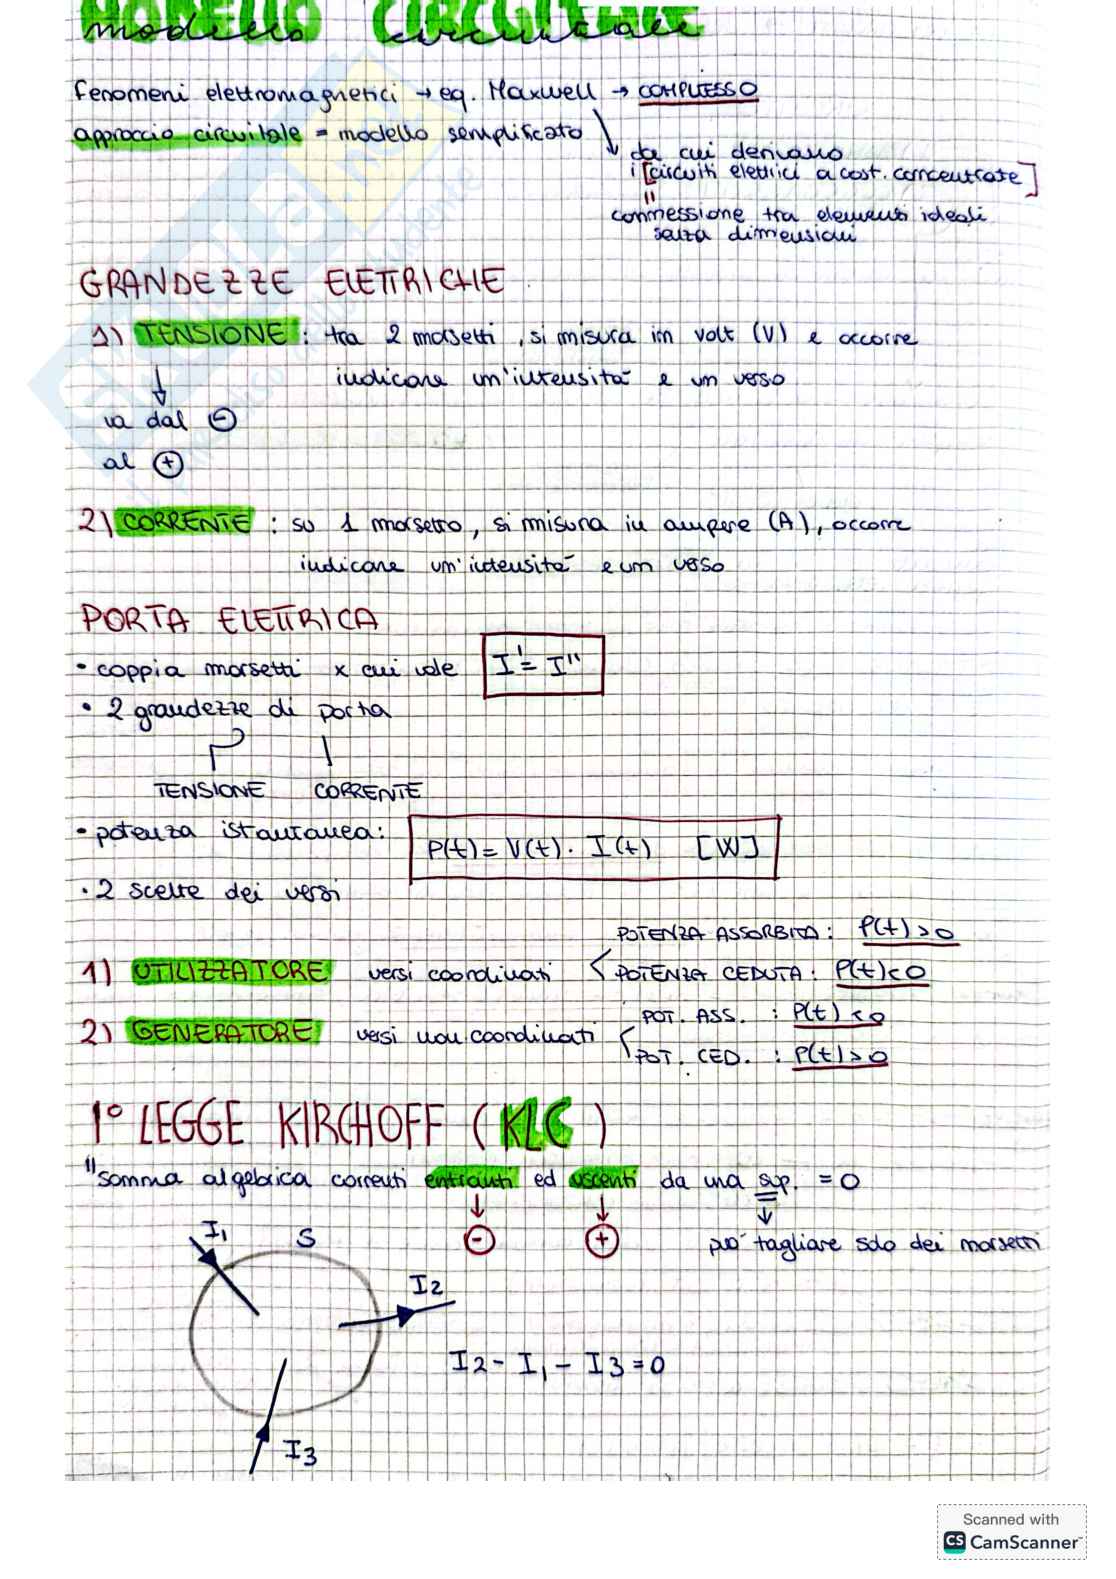 MODELLO CIRCUITALE
modello circuitale
fenomeni elettromagnetici → eq. Maxwell → COMPLESSO
approccio circuitale = modello semplificato
da cui derivano
i [circuiti elettrici a cost. concentrate]
"
connessione tra elementi ideali
senza dimensioni
GRANDEZZE ELETTRICHE
1) TENSIONE : tra 2 morsetti , si misura in volt (V) e occorre
indicare un'intensità e un verso
↓
va dal ⊖
al ⊕
2) CORRENTE : su 1 morsetto, si misura in ampere (A), occorre
indicare un'intensità e un verso
PORTA ELETTRICA
• coppia morsetti x cui vale I' = I"
• 2 grandezze di porta
TENSIONE CORRENTE
• potenza istantanea: P(t) = V(t) · I(t) [W]
• 2 scelte dei versi
POTENZA ASSORBITA : P(t) > 0
1) UTILIZZATORE versi coordinati < POTENZA CEDUTA : P(t) < 0
POT. ASS. : P(t) < 0
2) GENERATORE versi non coordinati
POT. CED. : P(t) > 0
1° LEGGE KIRCHOFF (KLC)
"somma algebrica correnti entranti ed uscenti da una sup. = 0
↓ ↓ ↓
⊖ ⊕ può tagliare solo dei morsetti
I1 S
I2
I2 - I1 - I3 = 0
I3
Scanned with
CS CamScanner